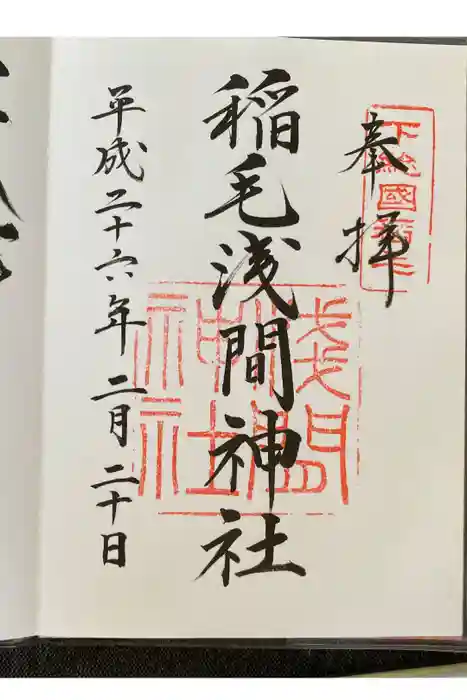 奉拝
下総國第二
稲毛浅間神社
浅間神社
平成二十六年二月二十日